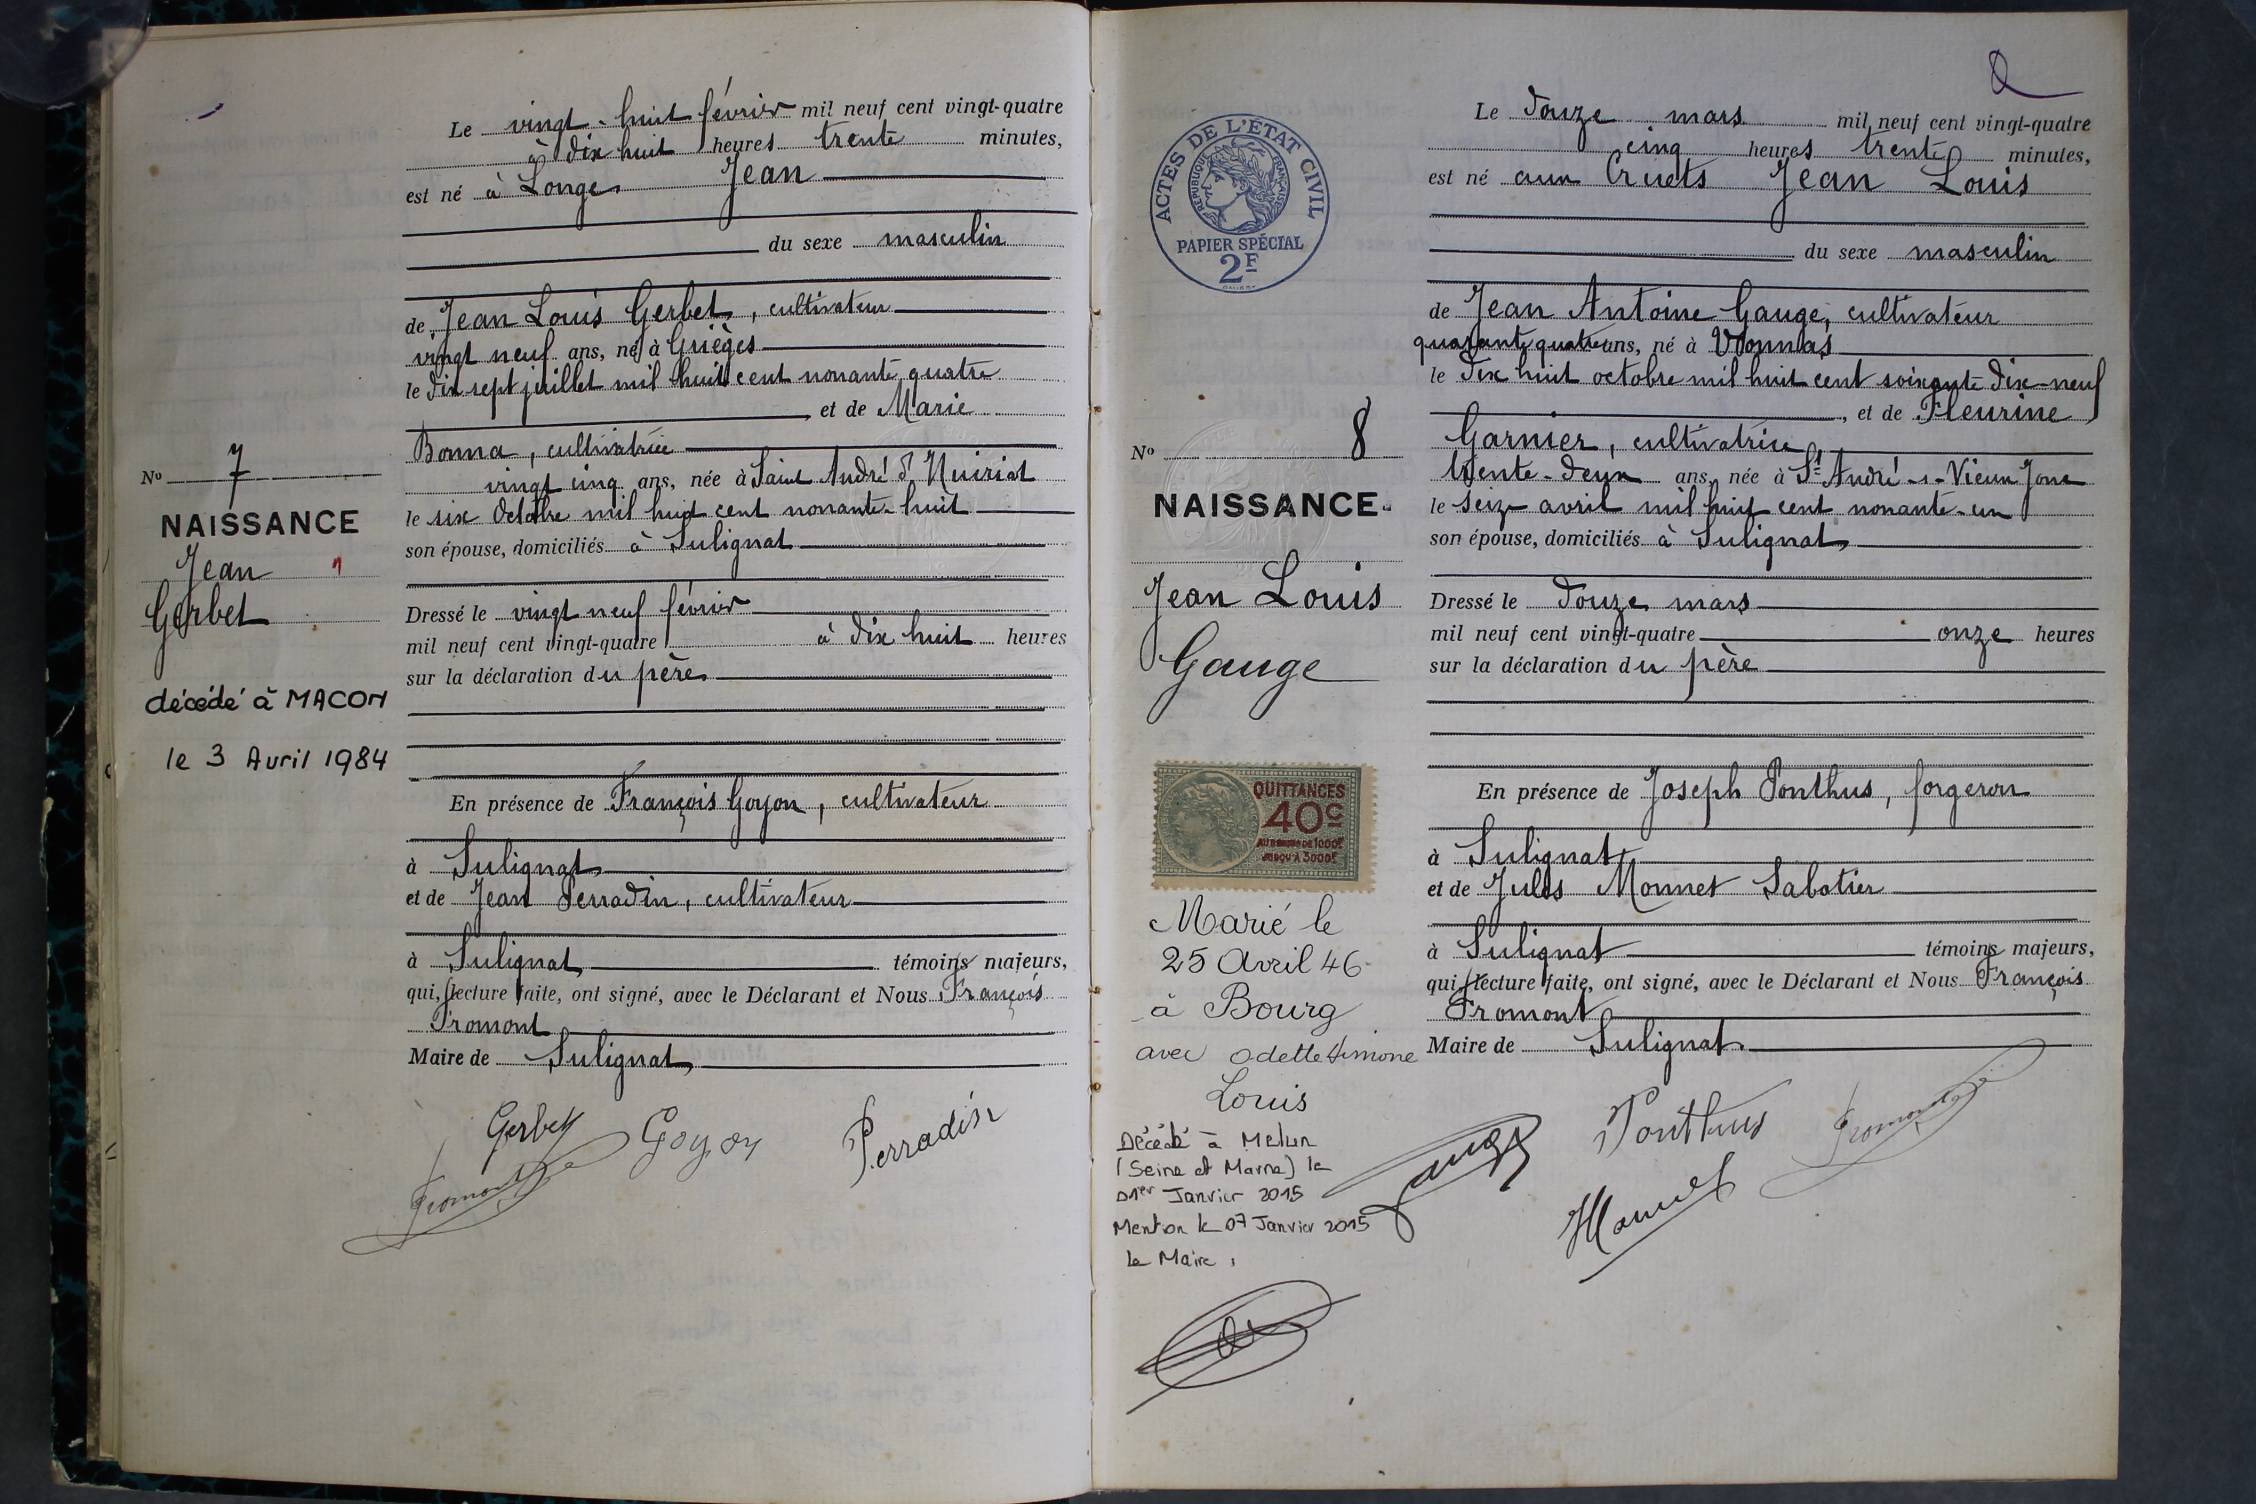 Le vingt-huit février mil neuf cent vingt-quatre
à dix huit heures trente minutes,
est né à Longe Jean
du sexe masculin
de Jean Louis Gerbet, cultivateur
vingt neuf ans, né à Grièges
le dix sept juillet mil huit cent nonante quatre
, et de Marie
Bonna, cultivatrice
vingt cinq ans, née à Saint André d'Huiriat
le six octobre mil huit cent nonante-huit
son épouse, domiciliés à Sulignat
Dressé le vingt neuf février
mil neuf cent vingt-quatre à dix huit heures
sur la déclaration du père
En présence de François Goyon, cultivateur
à Sulignat
et de Jean Perradin, cultivateur
à Sulignat témoins majeurs,
qui, lecture faite, ont signé, avec le Déclarant et Nous François
Fromont
Maire de Sulignat
Gerbet Goyon Perradin
Fromont
No 7
NAISSANCE
Jean
Gerbet
décédé à MACON
le 3 Avril 1984
Le douze mars mil neuf cent vingt-quatre
cinq heures trente minutes,
est né aux Cruets Jean Louis
du sexe masculin
de Jean Antoine Gauge, cultivateur
quarante quatre ans, né à Vonnas
le dix huit octobre mil huit cent soixante dix-neuf
, et de Fleurine
Garnier, cultivatrice
trente-deux ans, née à St André-s-Vieux Jonc
le seize avril mil huit cent nonante-un
son épouse, domiciliés à Sulignat
Dressé le douze mars
mil neuf cent vingt-quatre onze heures
sur la déclaration du père
En présence de Joseph Ponthus, forgeron
à Sulignat
et de Jules Monnet Sabotier
à Sulignat témoins majeurs,
qui, lecture faite, ont signé, avec le Déclarant et Nous François
Fromont
Maire de Sulignat
Gauge Ponthus Fromont
Monnet
ACTES DE L'ÉTAT CIVIL
RÉPUBLIQUE FRANÇAISE
PAPIER SPÉCIAL
2F
No 8
NAISSANCE
Jean Louis
Gauge
QUITTANCES
40c
AU DESSUS DE 1000F
JUSQU'À 3000F
Marié le
25 Avril 46
à Bourg
avec Odette Simone
Louis
Décédé à Melun
(Seine et Marne) le
01er Janvier 2015
Mention le 07 Janvier 2015
Le Maire,